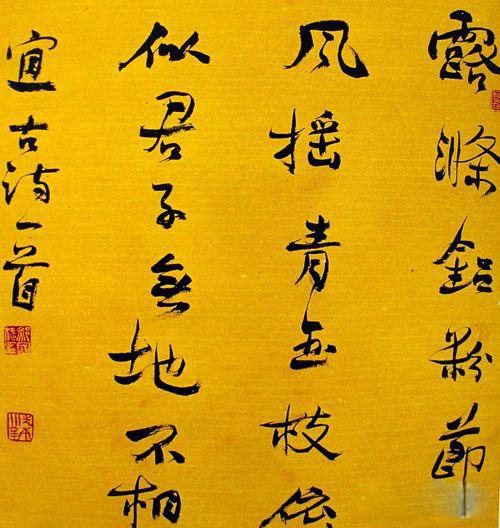 露滌鉛粉節
风摇青玉枝依
似君子無地不相
宜古诗一首